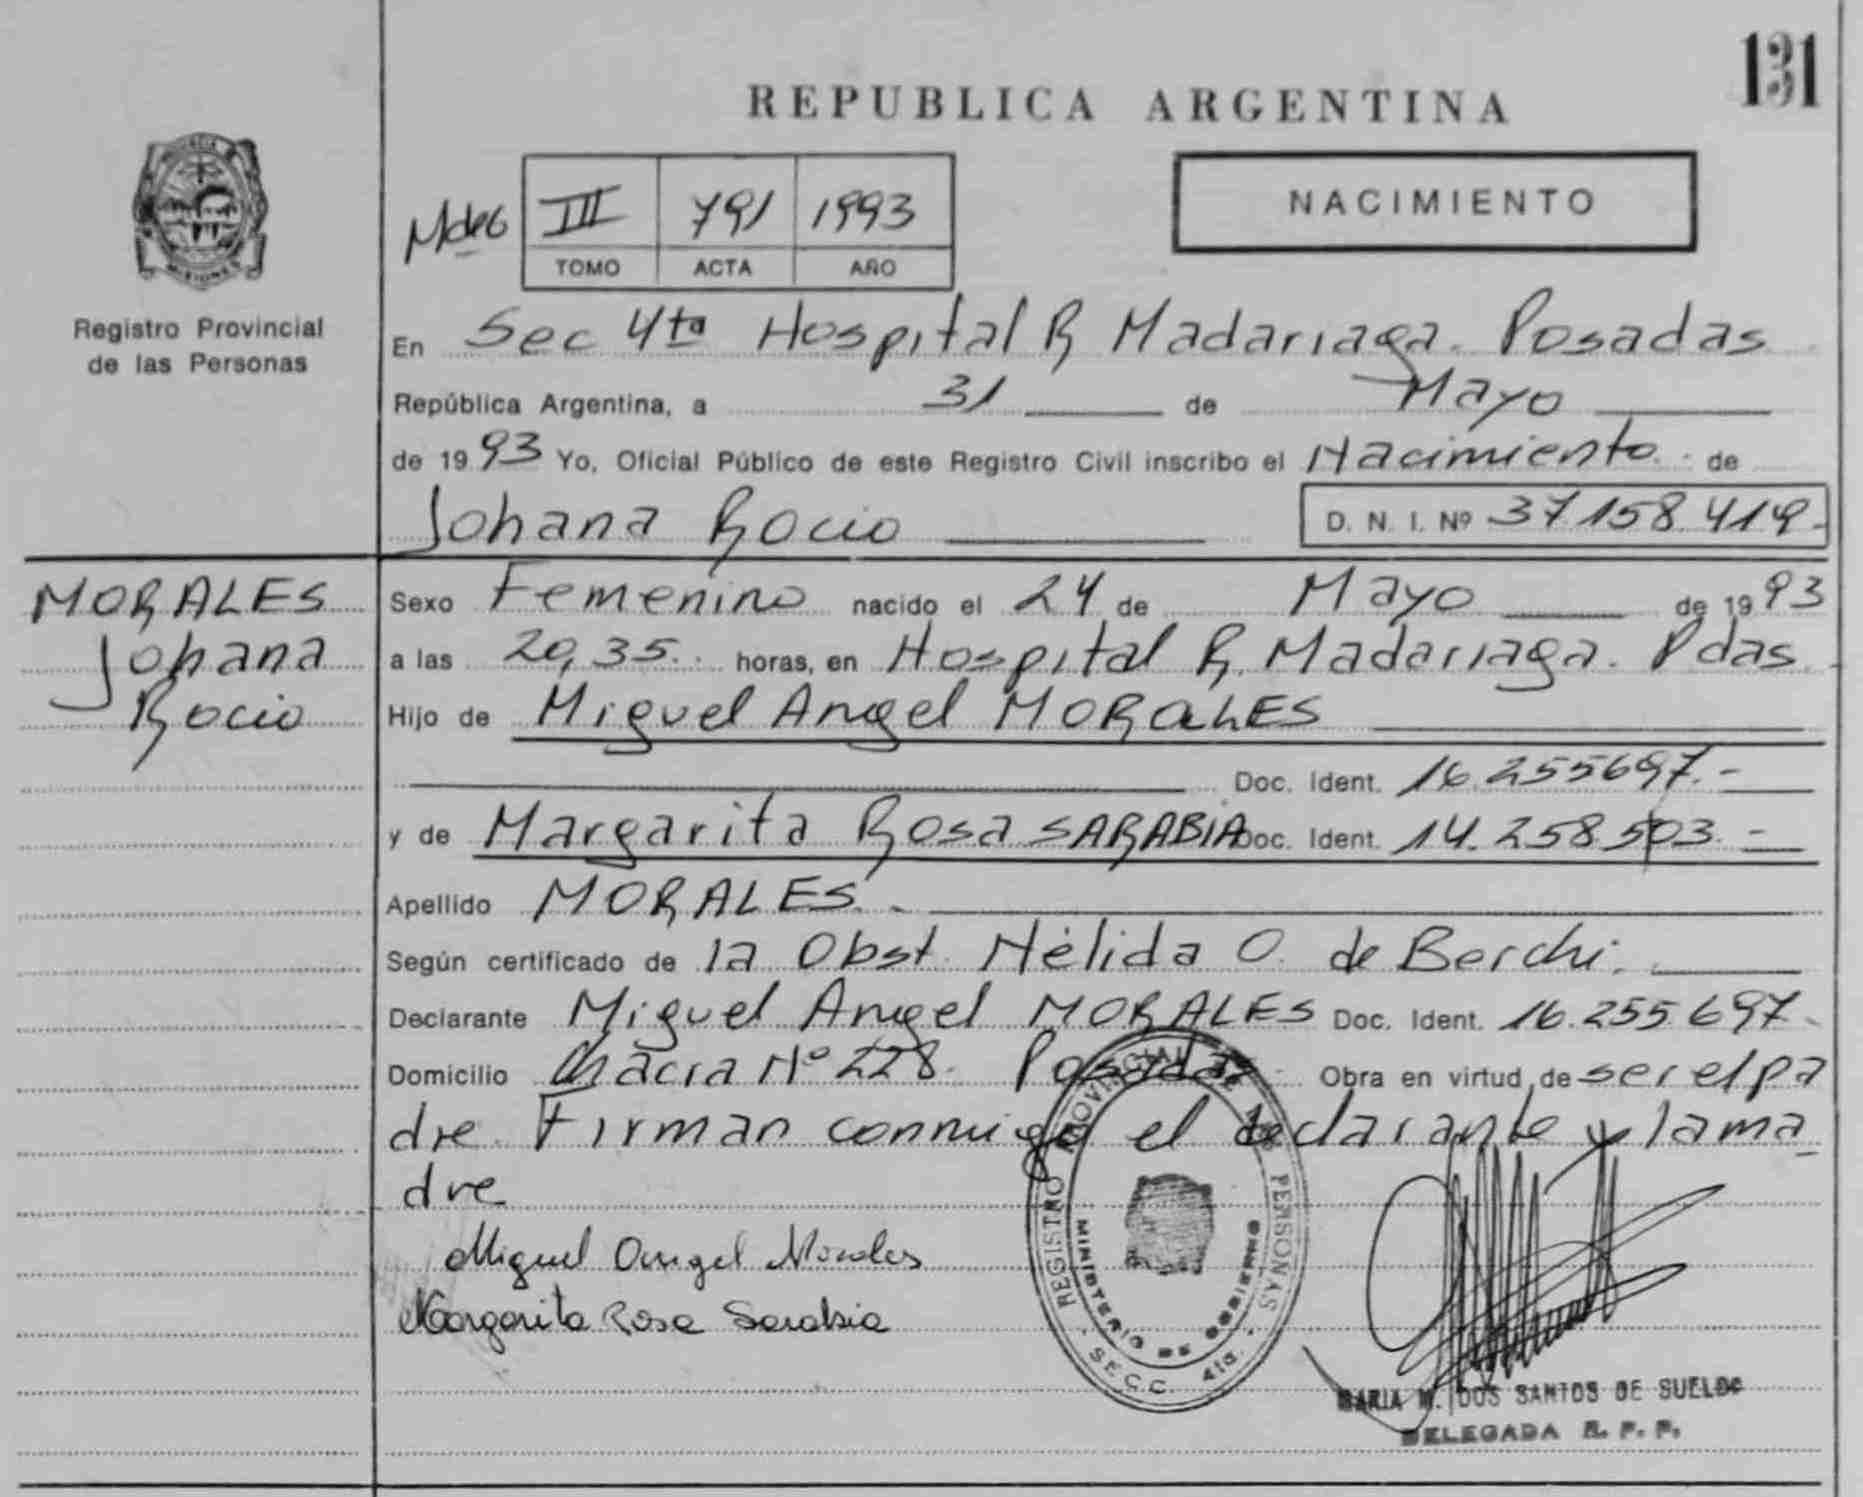 131
REPUBLICA ARGENTINA
NACIMIENTO
III 791 1993
TOMO ACTA AÑO
PROVINCIA DE
MISIONES
Registro Provincial
de las Personas
En Sec 4ta Hospital R Madariaga. Posadas
República Argentina, a 31 de Mayo
de 1993 Yo, Oficial Público de este Registro Civil inscribo el Nacimiento de
Johana Rocio D. N. I. Nº 37158.419-
MORALES
Johana
Rocio
Sexo Femenino nacido el 24 de Mayo de 1993
a las 20,35. horas, en Hospital R. Madariaga. Pdas
Hijo de Miguel Angel MORALES
Doc. Ident. 16.255697.-
y de Margarita Rosa SARABIA Doc. Ident. 14.258.503.-
Apellido MORALES.
Según certificado de la Obst. Nélida O. de Berchi.
Declarante Miguel Angel MORALES Doc. Ident. 16.255.697.
Domicilio Chacra Nº 228. Posadas Obra en virtud de ser el pa
dre. Firman conmigo el declarante y la ma
dre
Miguel Angel Morales
Margarita Rosa Sarabia
REGISTRO PROVINCIAL DE LAS PERSONAS
MINISTERIO DE GOBIERNO
SECC. 4ta.
MARIA M. DOS SANTOS DE SUELDO
DELEGADA R. P. P.